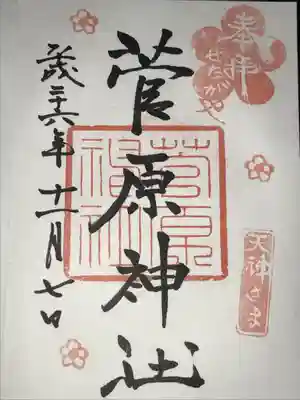 奉拝
せたがや
菅原神社
天神さま
菅原神社
平成二十六年十一月七日